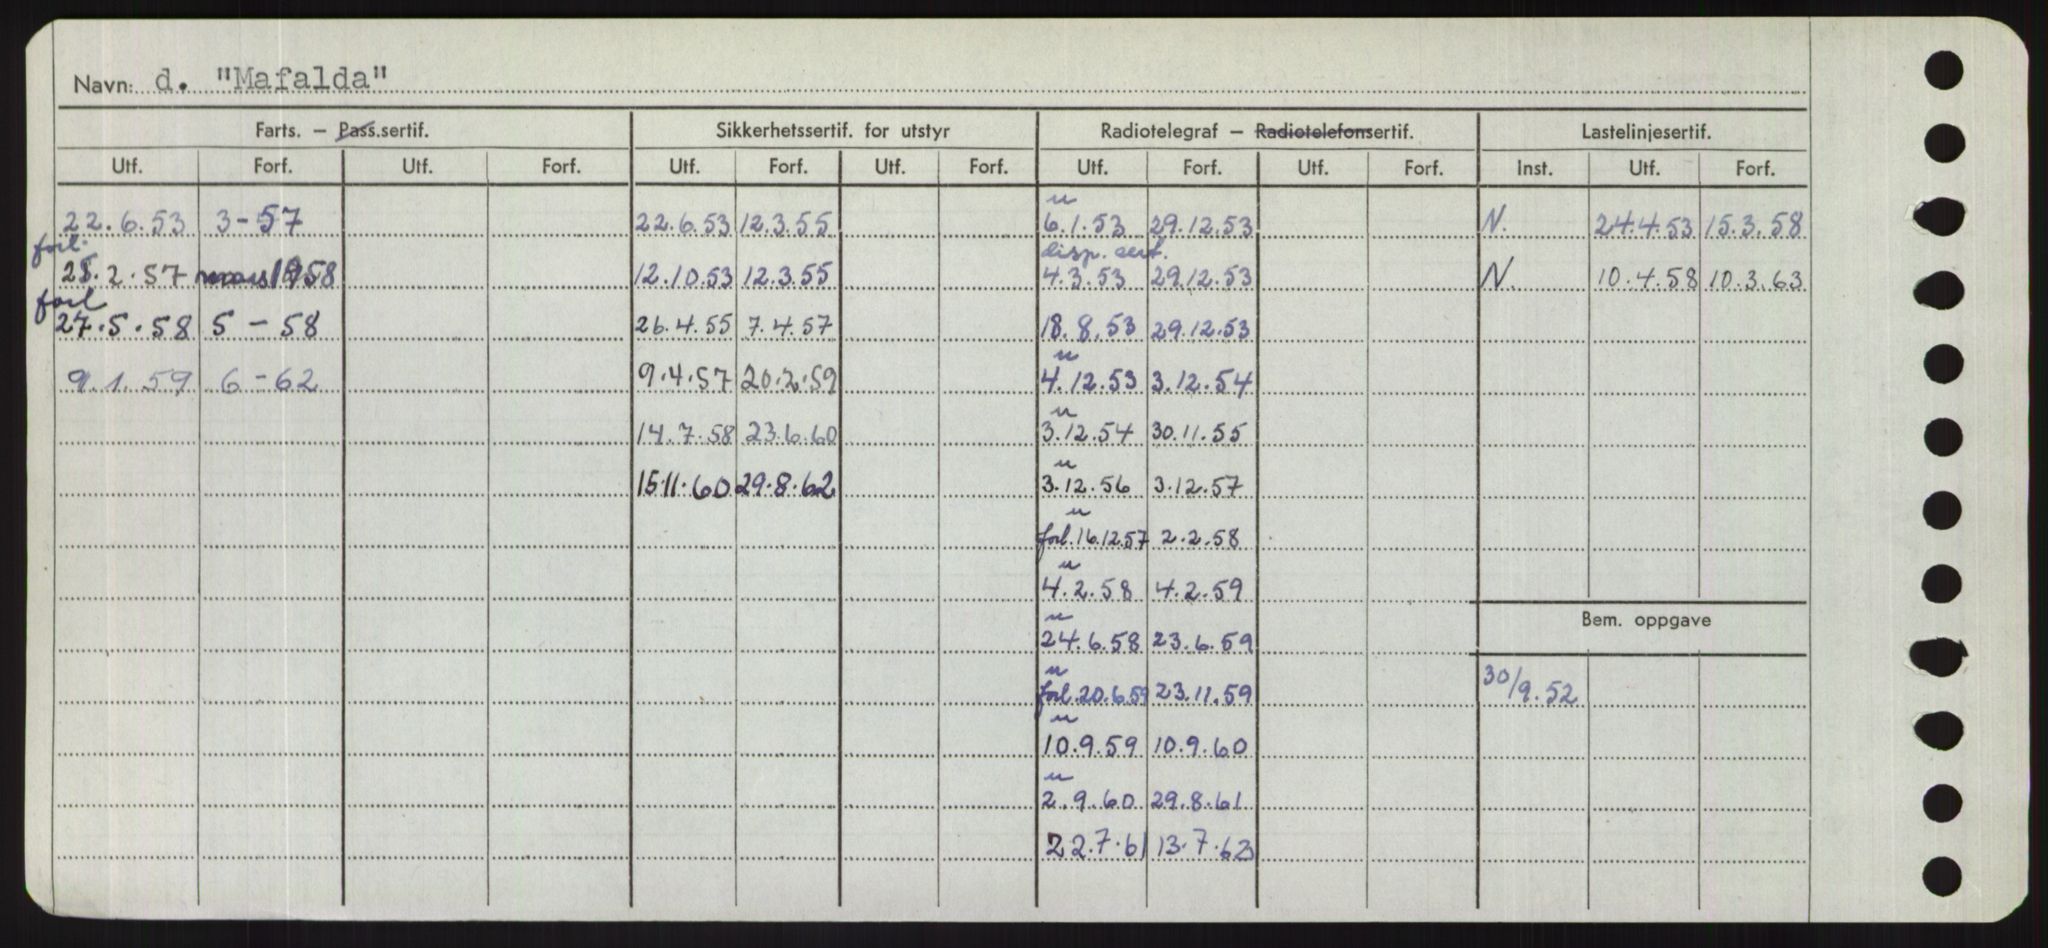 Navn: d. "Mafalda"
Farts. – Pass.sertif. Sikkerhetssertif. for utstyr Radiotelegraf – Radiotelefonsertif. Lastelinjesertif.
Utf. Forf. Utf. Forf. Utf. Forf. Utf. Forf. Utf. Forf. Utf. Forf. Inst. Utf. Forf.
u
22.6.53 3-57 22.6.53 12.3.55 6.1.53 29.12.53 N. 24.4.53 15.3.58
forl. disp. sert.
25.2.57 mars 1958 12.10.53 12.3.55 4.3.53 29.12.53 N. 10.4.58 10.3.63
forl
27.5.58 5-58 26.4.55 7.4.57 18.8.53 29.12.53
u
9.1.59 6-62 9.4.57 20.2.59 4.12.53 3.12.54
u
14.7.58 23.6.60 3.12.54 30.11.55
u
15.11.60 29.8.62 3.12.56 3.12.57
u
forl. 16.12.57 2.2.58
u
4.2.58 4.2.59
u Bem. oppgave
24.6.58 23.6.59
u
forl. 20.6.59 23.11.59 30/9.52
u
10.9.59 10.9.60
u
2.9.60 29.8.61
22.7.61 13.7.62